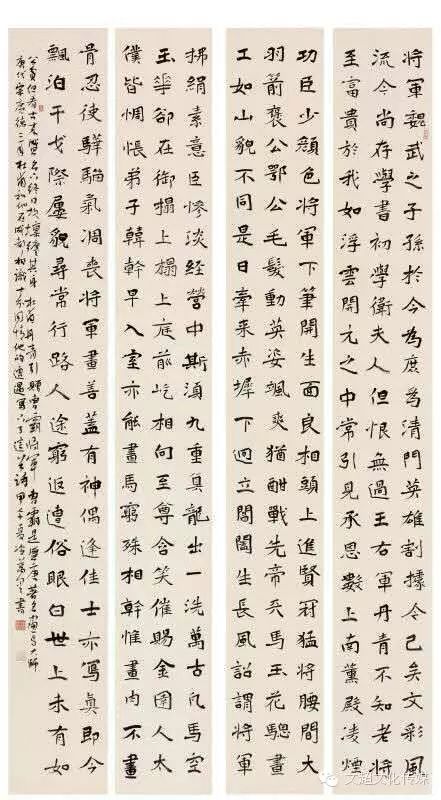 將軍魏武之子孫於今為庶為清門英雄割據今已矣文彩風
流今尚存學書初學衛夫人但恨無過王右軍丹青不知老將
至富貴於我如浮雲開元之中常引見承恩數上南薰殿凌煙
功臣少顏色將軍下筆開生面良相頭上進賢冠猛將腰間大
羽箭褒公鄂公毛髮動英姿颯爽猶酣戰先帝天馬玉花驄畫
工如山貌不同是日牽來赤墀下迥立閶闔生長風詔謂將軍
拂絹素意匠慘淡經營中斯須九重真龍出一洗萬古凡馬空
玉華卻在御榻上榻上庭前屹相向至尊含笑催賜金圉人太
僕皆惆悵弟子韓幹早入室亦能畫馬窮殊相幹惟畫肉不畫
骨忍使驊騮氣凋喪將軍畫善蓋有神偶逢佳士亦寫真即今
飄泊干戈際屢貌尋常行路人途窮返遭俗眼白世上未有如
公貧但看古來盛名下終日坎壈纏其身杜甫丹青引贈曹霸將軍曹霸是盛唐著名畫馬大師
唐代宗廣德二年杜甫和他在成都相識十分同情他的遭遇寫下了這首詩甲午夏書
文超文化传媒